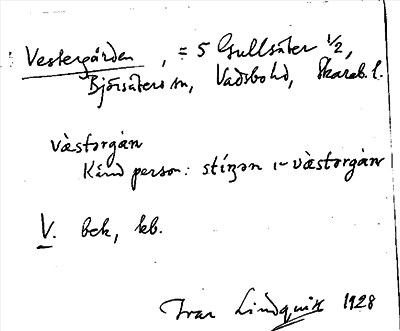 Vestergården, = 5 Gullsäter 1/2,
Björsäters sn, Vadsbo hd, Skarab. l.
västərgàn
Känd person: stíʒən i västərgàn
V. bek, kb.
Ivar Lindquist 1928